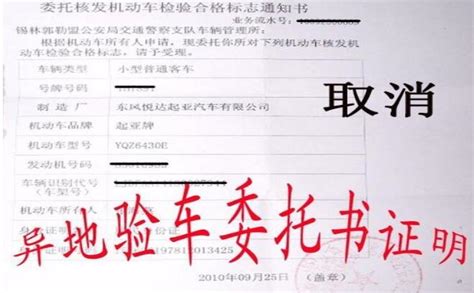 委托核发机动车检验合格标志通知书
业务流水号:
锡林郭勒盟公安局交通警察支队车辆管理所:
根据机动车所有人申请,现委托你所对下列机动车核发机
动车检验合格标志。请予受理。
车辆类型 小型普通客车
号牌号码
制造厂 东风悦达起亚汽车有限公司
机动车品牌 起亚牌
机动车型号 YQZ6430E
发动机号码
车辆识别代号
(车架号)
机动车所有人
取消
异地验车委托书证明
197812013425
2010年09月25日 (盖章)